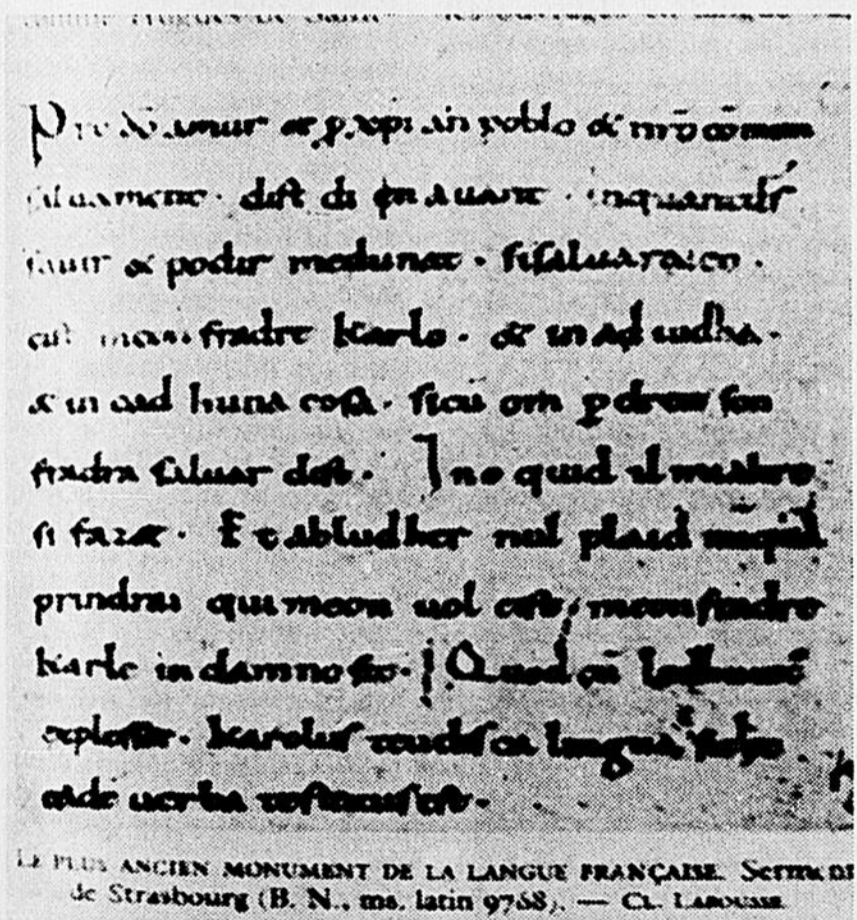 Pro dō amur et p̱ xp̄ian poblo et nr̄o cōmun
saluament. dist di en auant. inquantdſ
sauir et podir medunat. sisaluaraieo.
cist meon fradre Karlo. et in ad iudha.
et in cad huna cosa. sicū om p̱ dreit son
fradra saluar dist. Ino quid il mialtre
si fazet. Et abludher nul plaid nūquā
prindrai qui meon uol cist, meon fradre
Karle in damno sit. Quod cū lodhuuic̄
explesset. Karolus teudisca lingua sic
eadē uerba testatus est.
LE PLUS ANCIEN MONUMENT DE LA LANGUE FRANÇAISE. Serments
de Strasbourg (B. N., ms. latin 9768). — CL. LAROUSSE